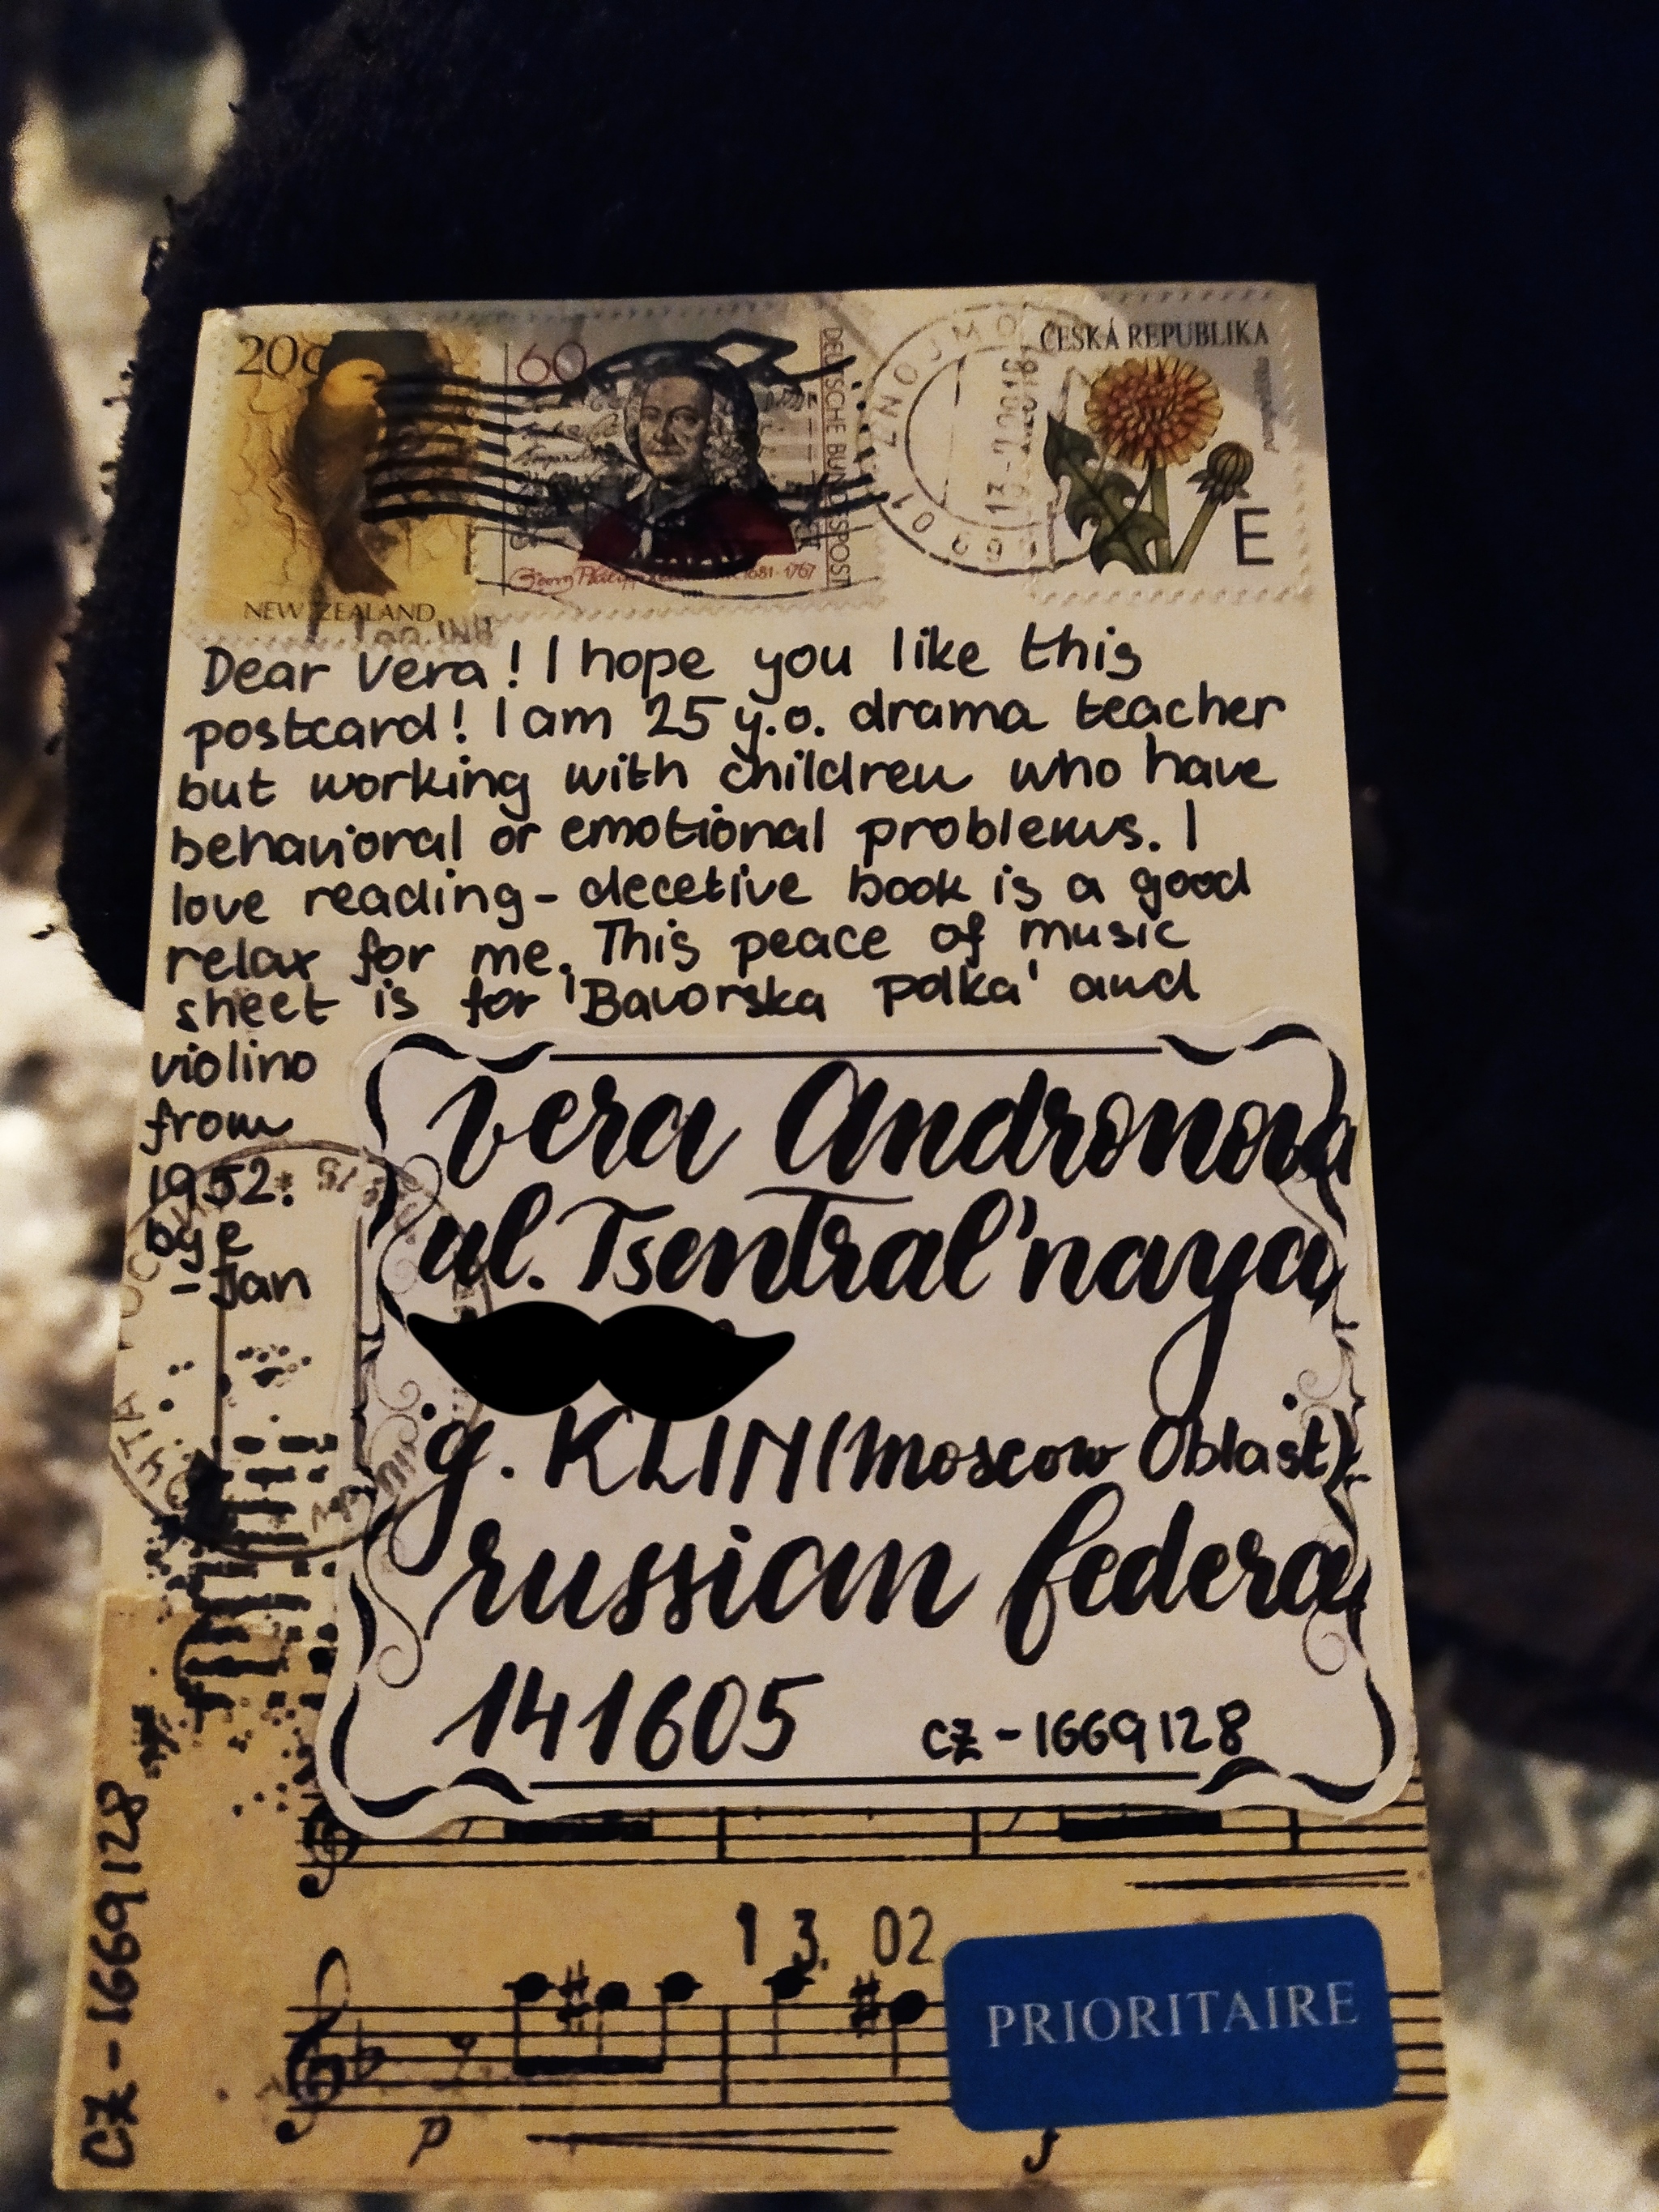 20c
NEW ZEALAND
60
DEUTSCHE BUNDESPOST
1681-1767
ZNOJMO
01
ČESKÁ REPUBLIKA
E
Dear Vera! I hope you like this
postcard! I am 25 y.o. drama teacher
but working with children who have
behavioral or emotional problems. I
love reading - decetive book is a good
relax for me. This peace of music
sheet is for 'Bavorska Polka' and
violino
from
1952.
bye
- Jan
Vera Andronova
ul. Tsentral'naya
g. KLIN (Moscow Oblast)
russian federa
141605 CZ-1669128
CZ-1669128
13.02
PRIORITAIRE
p
f